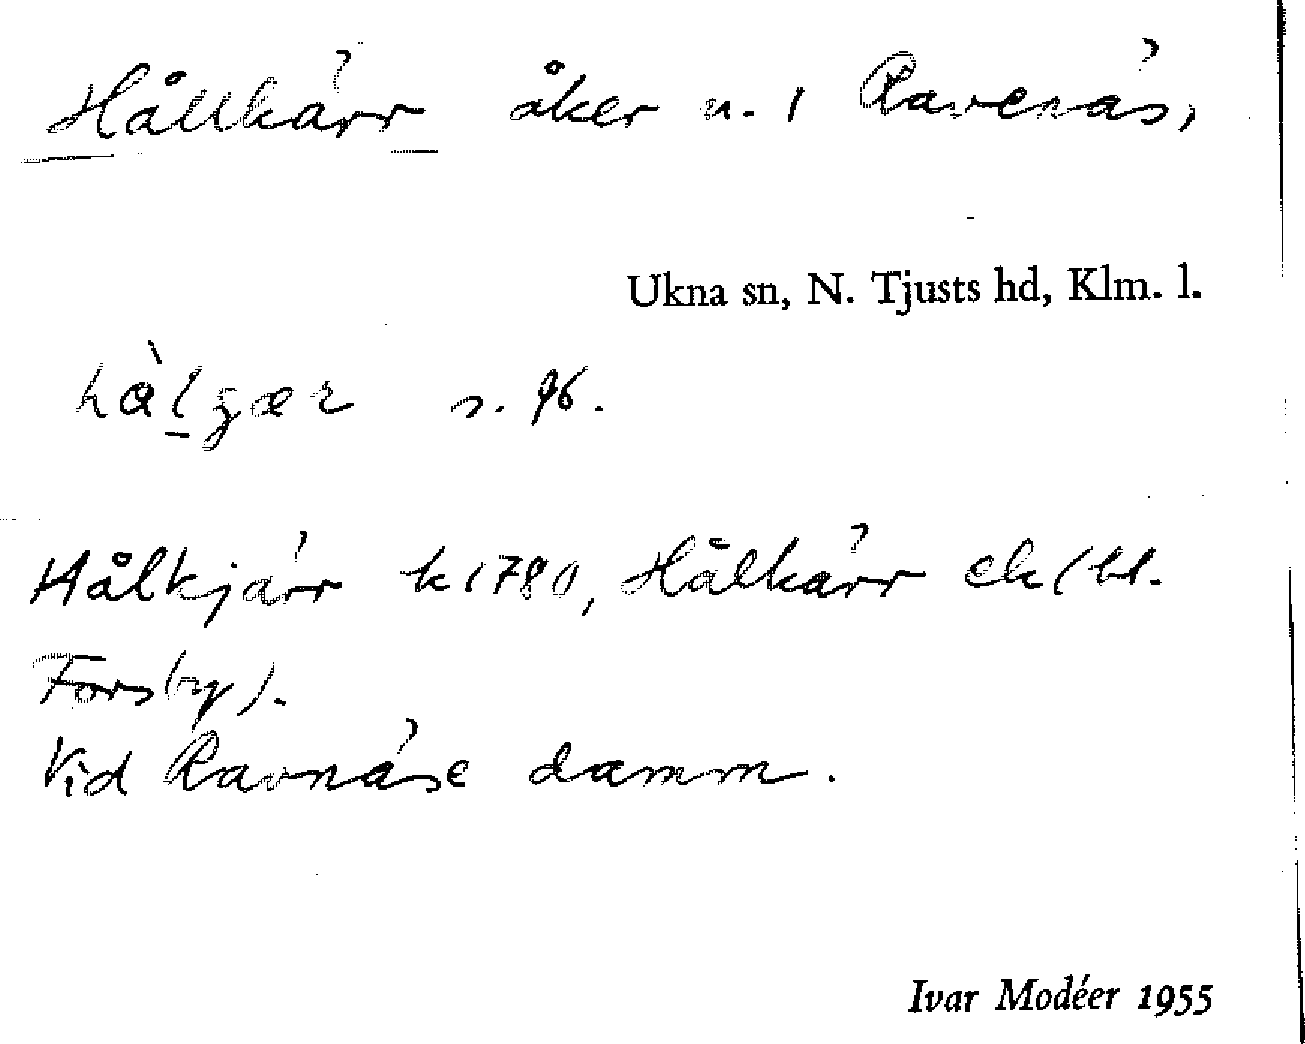 Hållkärr åker n. 1 Ravenäs,
Ukna sn, N. Tjusts hd, Klm. l.
s. 96.
Hålkjärr k 1780, Hålkärr ek (bl.
Forsby).
Vid Ravnäse damm.
Ivar Modéer 1955